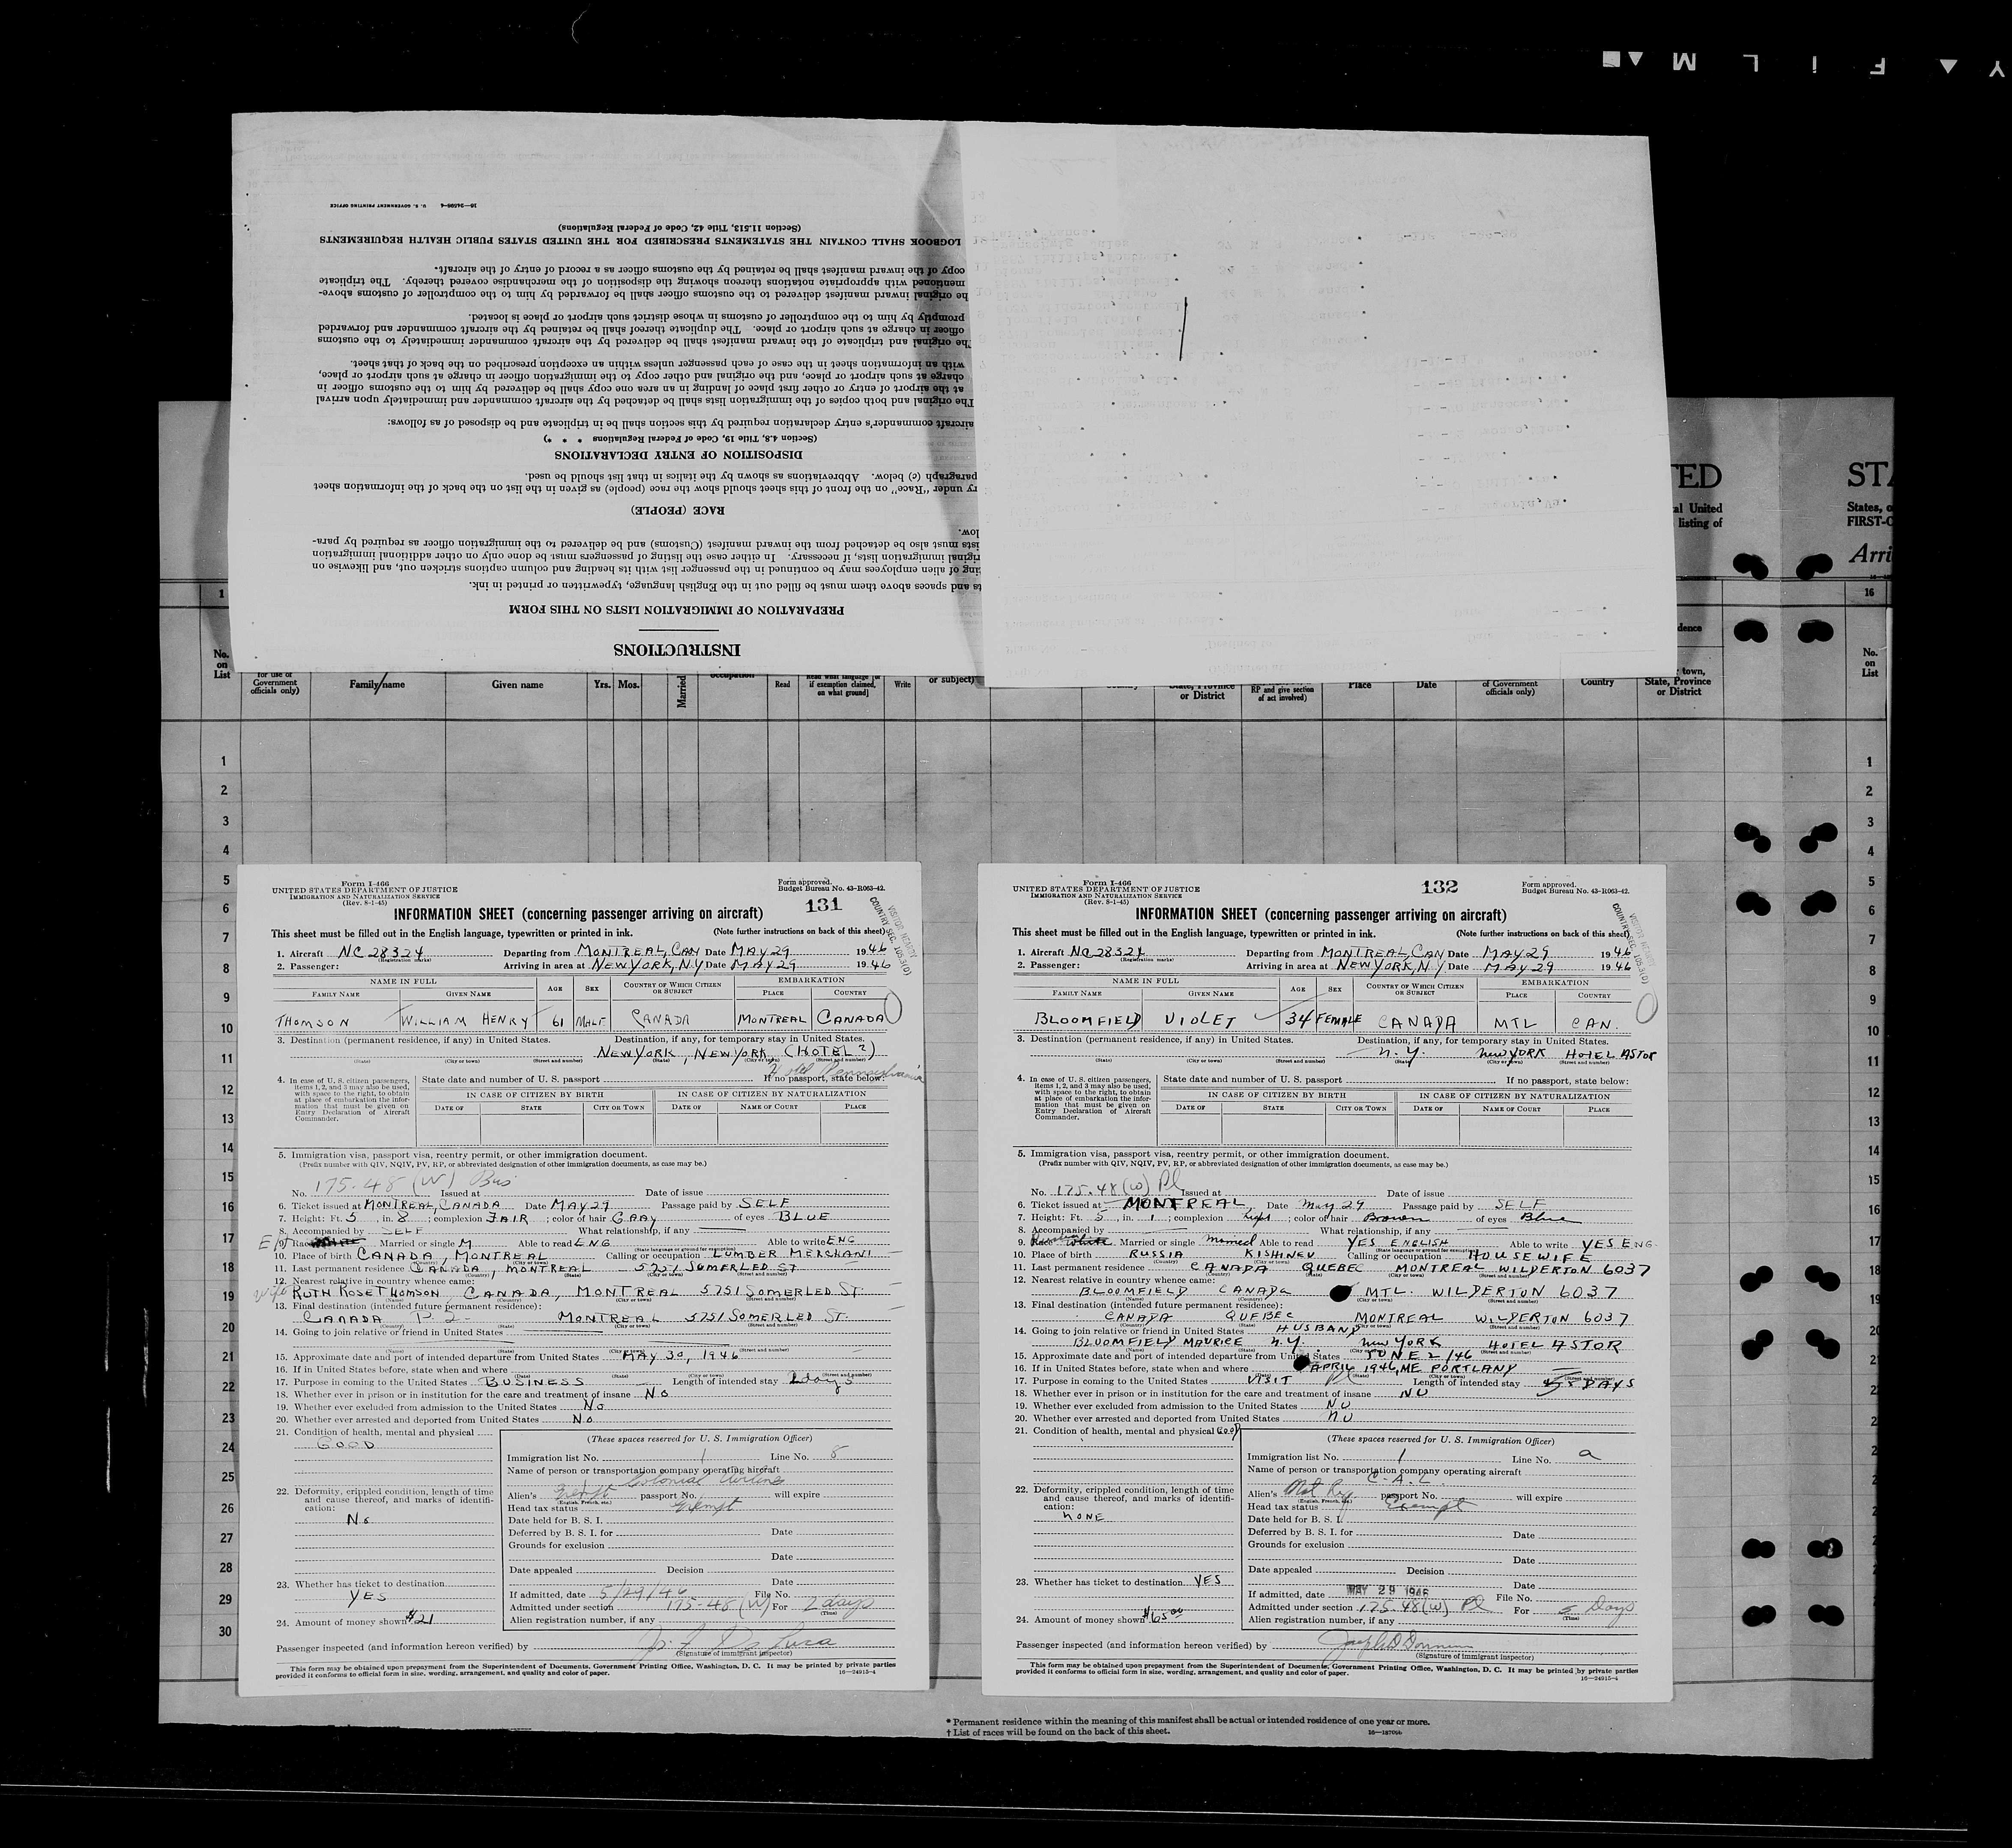 Y ▲ F I L M ▲■
16—24596-4 U. S. GOVERNMENT PRINTING OFFICE
(Section 11.513, Title 42, Code of Federal Regulations)
LOGBOOK SHALL CONTAIN THE STATEMENTS PRESCRIBED FOR THE UNITED STATES PUBLIC HEALTH REQUIREMENTS
copy of the inward manifest shall be retained by the customs officer as a record of entry of the aircraft.
mentioned with appropriate notations thereon showing the disposition of the merchandise covered thereby. The triplicate
he original inward manifest delivered to the customs officer shall be forwarded by him to the comptroller of customs above-
promptly by him to the comptroller of customs in whose district such airport or place is located.
officer in charge at such airport or place. The duplicate thereof shall be retained by the aircraft commander and forwarded
The original and triplicate of the inward manifest shall be delivered by the aircraft commander immediately to the customs
with an information sheet in the case of each passenger unless within an exception prescribed on the back of that sheet.
charge at such airport or place, and the original and other copy to the immigration officer in charge at such airport or place,
at the airport of entry or other first place of landing in an area one copy shall be delivered by him to the customs officer in
The original and both copies of the immigration lists shall be detached by the aircraft commander and immediately upon arrival
aircraft commander's entry declaration required by this section shall be in triplicate and be disposed of as follows:
(Section 4.8, Title 19, Code of Federal Regulations * * *)
DISPOSITION OF ENTRY DECLARATIONS
paragraph (c) below. Abbreviations as shown by the italics in that list should be used.
ry under "Race" on the front of this sheet should show the race (people) as given in the list on the back of the information sheet
RACE (PEOPLE)
low.
ists must also be detached from the inward manifest (Customs) and be delivered to the immigration officer as required by para-
riginal immigration lists, if necessary. In either case the listing of passengers must be done only on other additional immigration
ing of alien employees may be continued in the passenger list with its heading and column captions stricken out, and likewise on
ts and spaces above them must be filled out in the English language, typewritten or printed in ink.
PREPARATION OF IMMIGRATION LISTS ON THIS FORM
INSTRUCTIONS
TED STA
al United States, o
listing of FIRST-C
Arri
1 16
dence
No. on List for use of Government officials only) Family name Given name Yrs. Mos. Married occupation Read Read what language [or if exemption claimed, on what ground] Write or subject) State, Province or District RP and give section of act involved) Place Date of Government officials only) Country town, State, Province or District No. on List
1 1
2 2
3 3
4 4
5 5
6 6
7 7
8 8
9 9
10 10
11 11
12 12
13 13
14 14
15 15
16 16
17 17
18 18
19 19
20 20
21
22
23
24
25
26
27
28
29
30
Form I-466
UNITED STATES DEPARTMENT OF JUSTICE
IMMIGRATION AND NATURALIZATION SERVICE
(Rev. 8-1-45)
Form approved.
Budget Bureau No. 43-R063-42.
131
INFORMATION SHEET (concerning passenger arriving on aircraft)
This sheet must be filled out in the English language, typewritten or printed in ink. (Note further instructions on back of this sheet)
COUNTRY SEC. 105.3(D)
1. Aircraft NC 28324 Departing from MONTREAL, CAN Date MAY 29 1946
(Registration marks)
2. Passenger: Arriving in area at NEW YORK, N.Y Date MAY 29 1946
NAME IN FULL AGE SEX COUNTRY OF WHICH CITIZEN OR SUBJECT EMBARKATION
FAMILY NAME GIVEN NAME PLACE COUNTRY
THOMSON WILLIAM HENRY 61 MALE CANADA MONTREAL CANADA
3. Destination (permanent residence, if any) in United States. Destination, if any, for temporary stay in United States.
NEW YORK, NEW YORK (HOTEL?)
(State) (City or town) (Street and number) (State) (City or town) (Street and number)
Hotel Pennsylvania
4. In case of U. S. citizen passengers, items 1, 2, and 3 may also be used, with space to the right, to obtain at place of embarkation the information that must be given on Entry Declaration of Aircraft Commander.
State date and number of U. S. passport If no passport, state below:
IN CASE OF CITIZEN BY BIRTH IN CASE OF CITIZEN BY NATURALIZATION
DATE OF STATE CITY OR TOWN DATE OF NAME OF COURT PLACE
5. Immigration visa, passport visa, reentry permit, or other immigration document.
(Prefix number with QIV, NQIV, PV, RP, or abbreviated designation of other immigration documents, as case may be.)
No. 175.48 (W) Bus Issued at Date of issue
6. Ticket issued at MONTREAL, CANADA Date MAY 29 Passage paid by SELF
7. Height: Ft. 5, in. 8; complexion FAIR; color of hair GRAY of eyes BLUE
8. Accompanied by SELF What relationship, if any
9. Race Married or single M Able to read ENG Able to write ENG
(State language or ground for exemption)
10. Place of birth CANADA, MONTREAL Calling or occupation LUMBER MERCHANT
11. Last permanent residence CANADA, MONTREAL 5751 SOMERLED ST
12. Nearest relative in country whence came:
wife RUTH ROSE THOMSON, CANADA, MONTREAL 5751 SOMERLED ST.
13. Final destination (intended future permanent residence):
CANADA P.Q. MONTREAL 5751 SOMERLED ST.
14. Going to join relative or friend in United States
15. Approximate date and port of intended departure from United States MAY 30, 1946
16. If in United States before, state when and where
17. Purpose in coming to the United States BUSINESS Length of intended stay 2 days
18. Whether ever in prison or in institution for the care and treatment of insane NO
19. Whether ever excluded from admission to the United States NO
20. Whether ever arrested and deported from United States NO
21. Condition of health, mental and physical
GOOD
22. Deformity, crippled condition, length of time and cause thereof, and marks of identification:
No
23. Whether has ticket to destination
YES
24. Amount of money shown $21
(These spaces reserved for U. S. Immigration Officer)
Immigration list No. 1 Line No. 8
Name of person or transportation company operating aircraft
Colonial Airlines
Alien's Exempt passport No. will expire
(English, French, etc.)
Head tax status Exempt
Date held for B. S. I.
Deferred by B. S. I. for Date
Grounds for exclusion
Date
Date appealed Decision
Date
If admitted, date 5/29/46 File No.
Admitted under section 175-48 (W) For 2 days
(Time)
Alien registration number, if any
Passenger inspected (and information hereon verified) by
(Signature of immigrant inspector)
This form may be obtained upon prepayment from the Superintendent of Documents, Government Printing Office, Washington, D. C. It may be printed by private parties
provided it conforms to official form in size, wording, arrangement, and quality and color of paper. 16—24915-4
Form I-466
UNITED STATES DEPARTMENT OF JUSTICE
IMMIGRATION AND NATURALIZATION SERVICE
(Rev. 8-1-45)
132
Form approved.
Budget Bureau No. 43-R063-42.
INFORMATION SHEET (concerning passenger arriving on aircraft)
This sheet must be filled out in the English language, typewritten or printed in ink. (Note further instructions on back of this sheet)
COUNTRY SEC. 105.3(D)
1. Aircraft NC 28324 Departing from MONTREAL, CAN Date MAY 29 1946
(Registration marks)
2. Passenger: Arriving in area at NEW YORK, N.Y Date MAY 29 1946
NAME IN FULL AGE SEX COUNTRY OF WHICH CITIZEN OR SUBJECT EMBARKATION
FAMILY NAME GIVEN NAME PLACE COUNTRY
BLOOMFIELD VIOLET 34 FEMALE CANADA MTL CAN.
3. Destination (permanent residence, if any) in United States. Destination, if any, for temporary stay in United States.
N.Y. NEW YORK HOTEL ASTOR
(State) (City or town) (Street and number) (State) (City or town) (Street and number)
4. In case of U. S. citizen passengers, items 1, 2, and 3 may also be used, with space to the right, to obtain at place of embarkation the information that must be given on Entry Declaration of Aircraft Commander.
State date and number of U. S. passport If no passport, state below:
IN CASE OF CITIZEN BY BIRTH IN CASE OF CITIZEN BY NATURALIZATION
DATE OF STATE CITY OR TOWN DATE OF NAME OF COURT PLACE
5. Immigration visa, passport visa, reentry permit, or other immigration document.
(Prefix number with QIV, NQIV, PV, RP, or abbreviated designation of other immigration documents, as case may be.)
No. 175.48 (W) Pl Issued at Date of issue
6. Ticket issued at MONTREAL, Date May 29 Passage paid by SELF
7. Height: Ft. 5, in. 1; complexion Light; color of hair Brown of eyes Blue
8. Accompanied by What relationship, if any
9. Race White Married or single Married Able to read YES ENGLISH Able to write YES ENG
(State language or ground for exemption)
10. Place of birth RUSSIA KISHINEV Calling or occupation HOUSEWIFE
11. Last permanent residence CANADA QUEBEC MONTREAL WILDERTON 6037
12. Nearest relative in country whence came:
BLOOMFIELD CANADA MTL. WILDERTON 6037
13. Final destination (intended future permanent residence):
CANADA QUEBEC MONTREAL WILDERTON 6037
14. Going to join relative or friend in United States HUSBAND
BLOOMFIELD MAURICE N.Y. NEW YORK HOTEL ASTOR
15. Approximate date and port of intended departure from United States JUNE 2/46
16. If in United States before, state when and where APRIL 1946, ME PORTLAND
17. Purpose in coming to the United States VISIT Pl Length of intended stay 5 DAYS
18. Whether ever in prison or in institution for the care and treatment of insane NO
19. Whether ever excluded from admission to the United States NO
20. Whether ever arrested and deported from United States NO
21. Condition of health, mental and physical GOOD
22. Deformity, crippled condition, length of time and cause thereof, and marks of identification:
NONE
23. Whether has ticket to destination YES
24. Amount of money shown $65.00
(These spaces reserved for U. S. Immigration Officer)
Immigration list No. 1 Line No. a
Name of person or transportation company operating aircraft
C.A.L.
Alien's Not Req passport No. will expire
(English, French, etc.)
Head tax status Exempt
Date held for B. S. I.
Deferred by B. S. I. for Date
Grounds for exclusion
Date
Date appealed Decision
Date
If admitted, date MAY 29 1946 File No.
Admitted under section 175.48(W) Pl For 5 Days
(Time)
Alien registration number, if any
Passenger inspected (and information hereon verified) by
(Signature of immigrant inspector)
This form may be obtained upon prepayment from the Superintendent of Documents, Government Printing Office, Washington, D. C. It may be printed by private parties
provided it conforms to official form in size, wording, arrangement, and quality and color of paper. 16—24915-4
* Permanent residence within the meaning of this manifest shall be actual or intended residence of one year or more.
† List of races will be found on the back of this sheet.